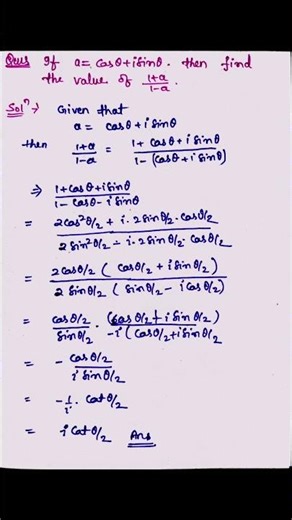 Ques If a = cosθ + i sinθ. then find
the value of (1+a)/(1-a).
Solⁿ :→ Given that
a = cosθ + i sinθ
then (1+a)/(1-a) = (1 + cosθ + i sinθ)/(1 - (cosθ + i sinθ))
⇒ (1 + cosθ + i sinθ)/(1 - cosθ - i sinθ)
= (2cos²θ/2 + i·2sinθ/2·cosθ/2)/(2 sin²θ/2 - i·2sinθ/2·cosθ/2)
= (2cosθ/2 (cosθ/2 + i sinθ/2))/(2 sinθ/2 (sinθ/2 - i cosθ/2))
= (cosθ/2)/(sinθ/2) · (cosθ/2 + i sinθ/2)/(-i (cosθ/2 + i sinθ/2
= - (cosθ/2)/(i sinθ/2)
= -1/i · cotθ/2
= i cotθ/2 Ans